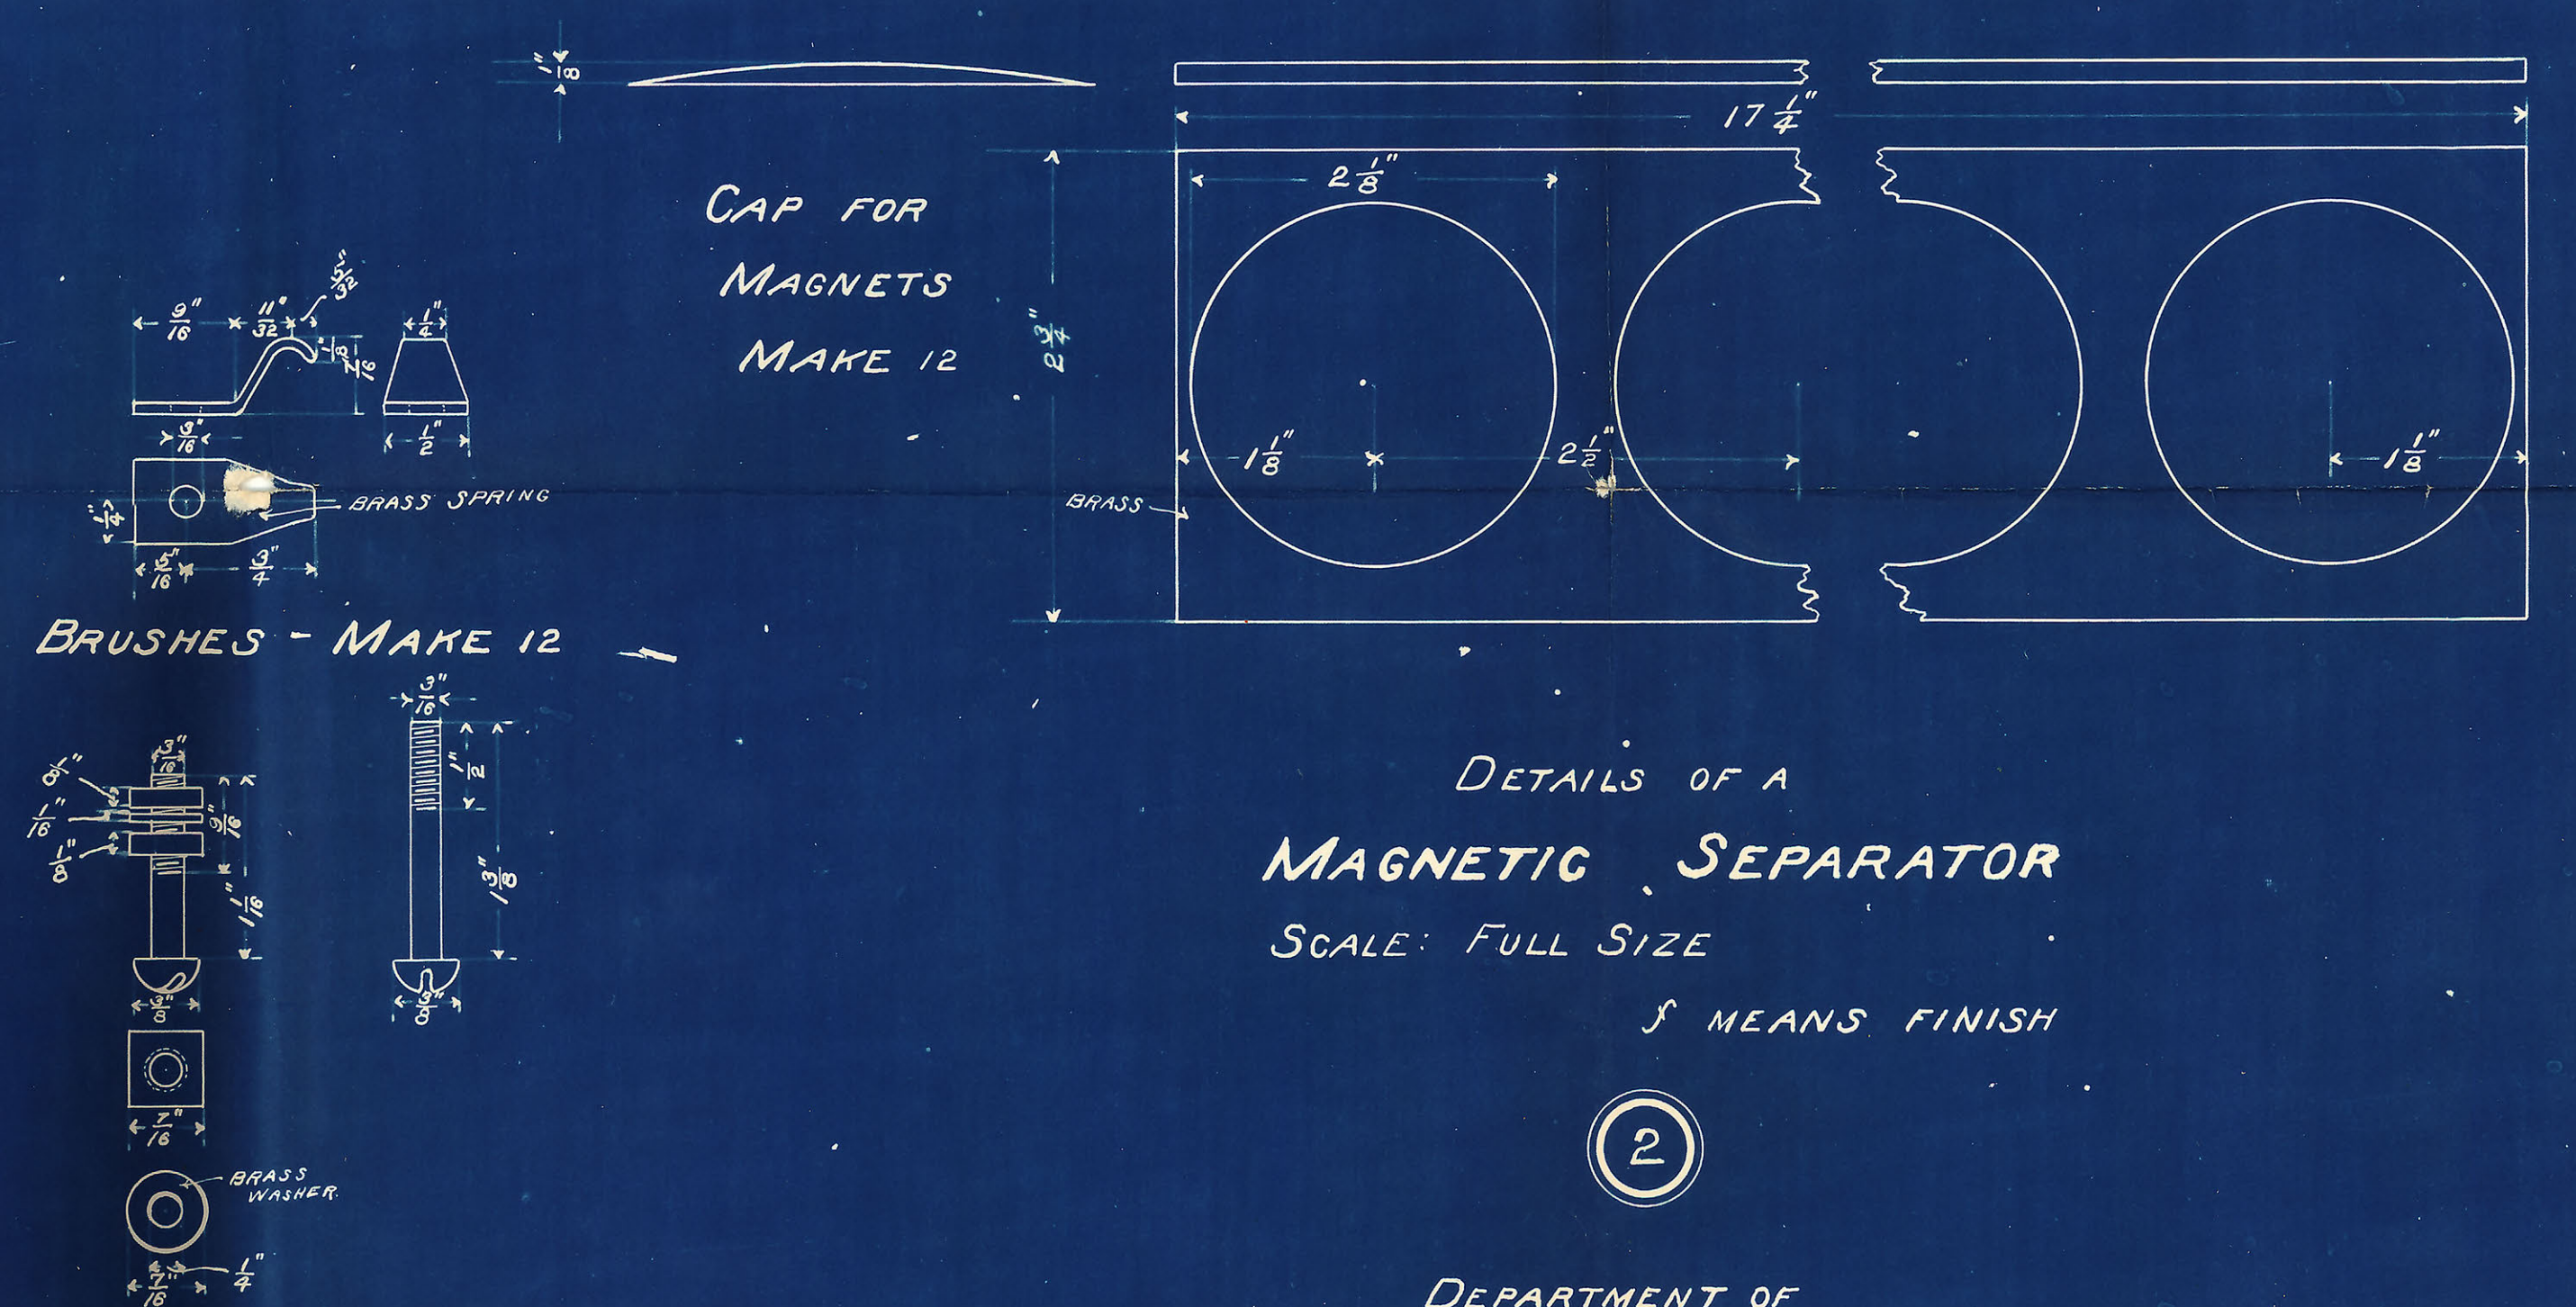 1/8"
17 1/4"
CAP FOR
MAGNETS
MAKE 12
2 1/8"
2 3/4"
1 1/8"
2 1/2"
1 1/8"
BRASS
9/16"
11/32"
5/32"
1/8"
7/16
1/4"
3/16"
1/2"
BRASS SPRING
1/4"
5/16"
3/4"
BRUSHES - MAKE 12
3/16"
1/2"
1 3/8"
3/8"
3/16"
1/8"
1/16"
1/8"
9/16"
1 1/16"
3/8"
7/16"
BRASS
WASHER.
1/4"
7/16"
DETAILS OF A
MAGNETIC SEPARATOR
SCALE: FULL SIZE
f MEANS FINISH
2
DEPARTMENT OF